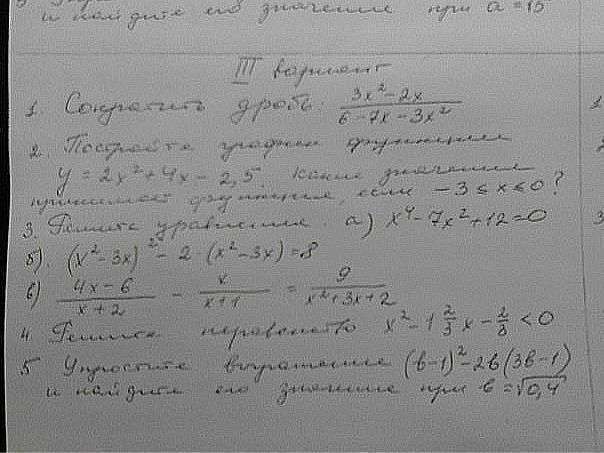 и найдите его значение при a = 15
III вариант
1. Сократить дробь: (3x² - 2x)/(6 - 7x - 3x²)
2. Постройте график функции
y = 2x² + 4x - 2,5. Какие значения
принимает функция, если -3 ≤ x ≤ 0?
3. Решите уравнения. а) x⁴ - 7x² + 12 = 0
б). (x² - 3x)² - 2 · (x² - 3x) = 8
в) (4x - 6)/(x + 2) - x/(x + 1) = 9/(x² + 3x + 2)
4. Решить неравенство x² - 1 2/3 x - 2/3 < 0
5 Упростите выражение (b - 1)² - 2b(3b - 1)
и найдите его значение при b = √0,4